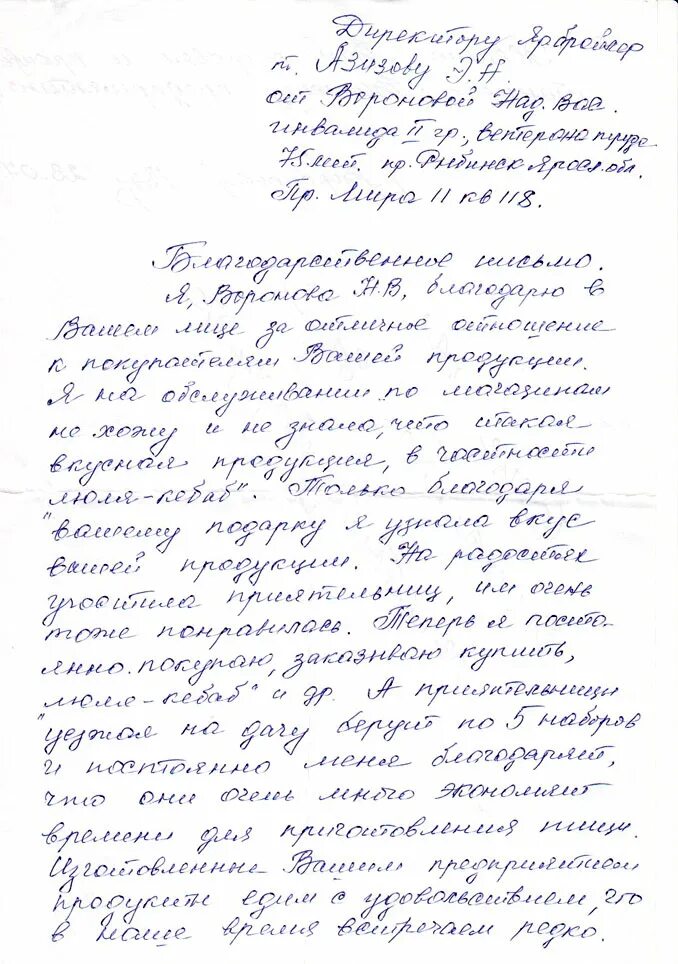 Директору Ярбройлер
т. Азизову Э. Н.
от Вороновой Над. Вас.
инвалида II гр., ветерана труда
75 лет. пр. Рыбинск Яросл. обл.
Пр. Мира 11 кв 118.
Благодарственное письмо.
Я, Воронова Н.В, благодарю в
Вашем лице за отличное отношение
к покупателям Вашей продукции.
Я на обслуживании по магазинам
не хожу и не знала, что такая
вкусная продукция, в частности
"люля-кебаб". Только благодаря
вашему подарку я узнала вкус
вашей продукции. На радостях
угостила приятельниц, им очень
тоже понравилась. Теперь я посто-
янно покупаю, заказываю купить,
"люля-кебаб" и др. А приятельницы
уезжая на дачу берут по 5 наборов
и постоянно меня благодарят,
что они очень много экономят
времени для приготовления пищи.
Изготовленные Вашим предприятием
продукты едим с удовольствием, что
в наше время встречаем редко.